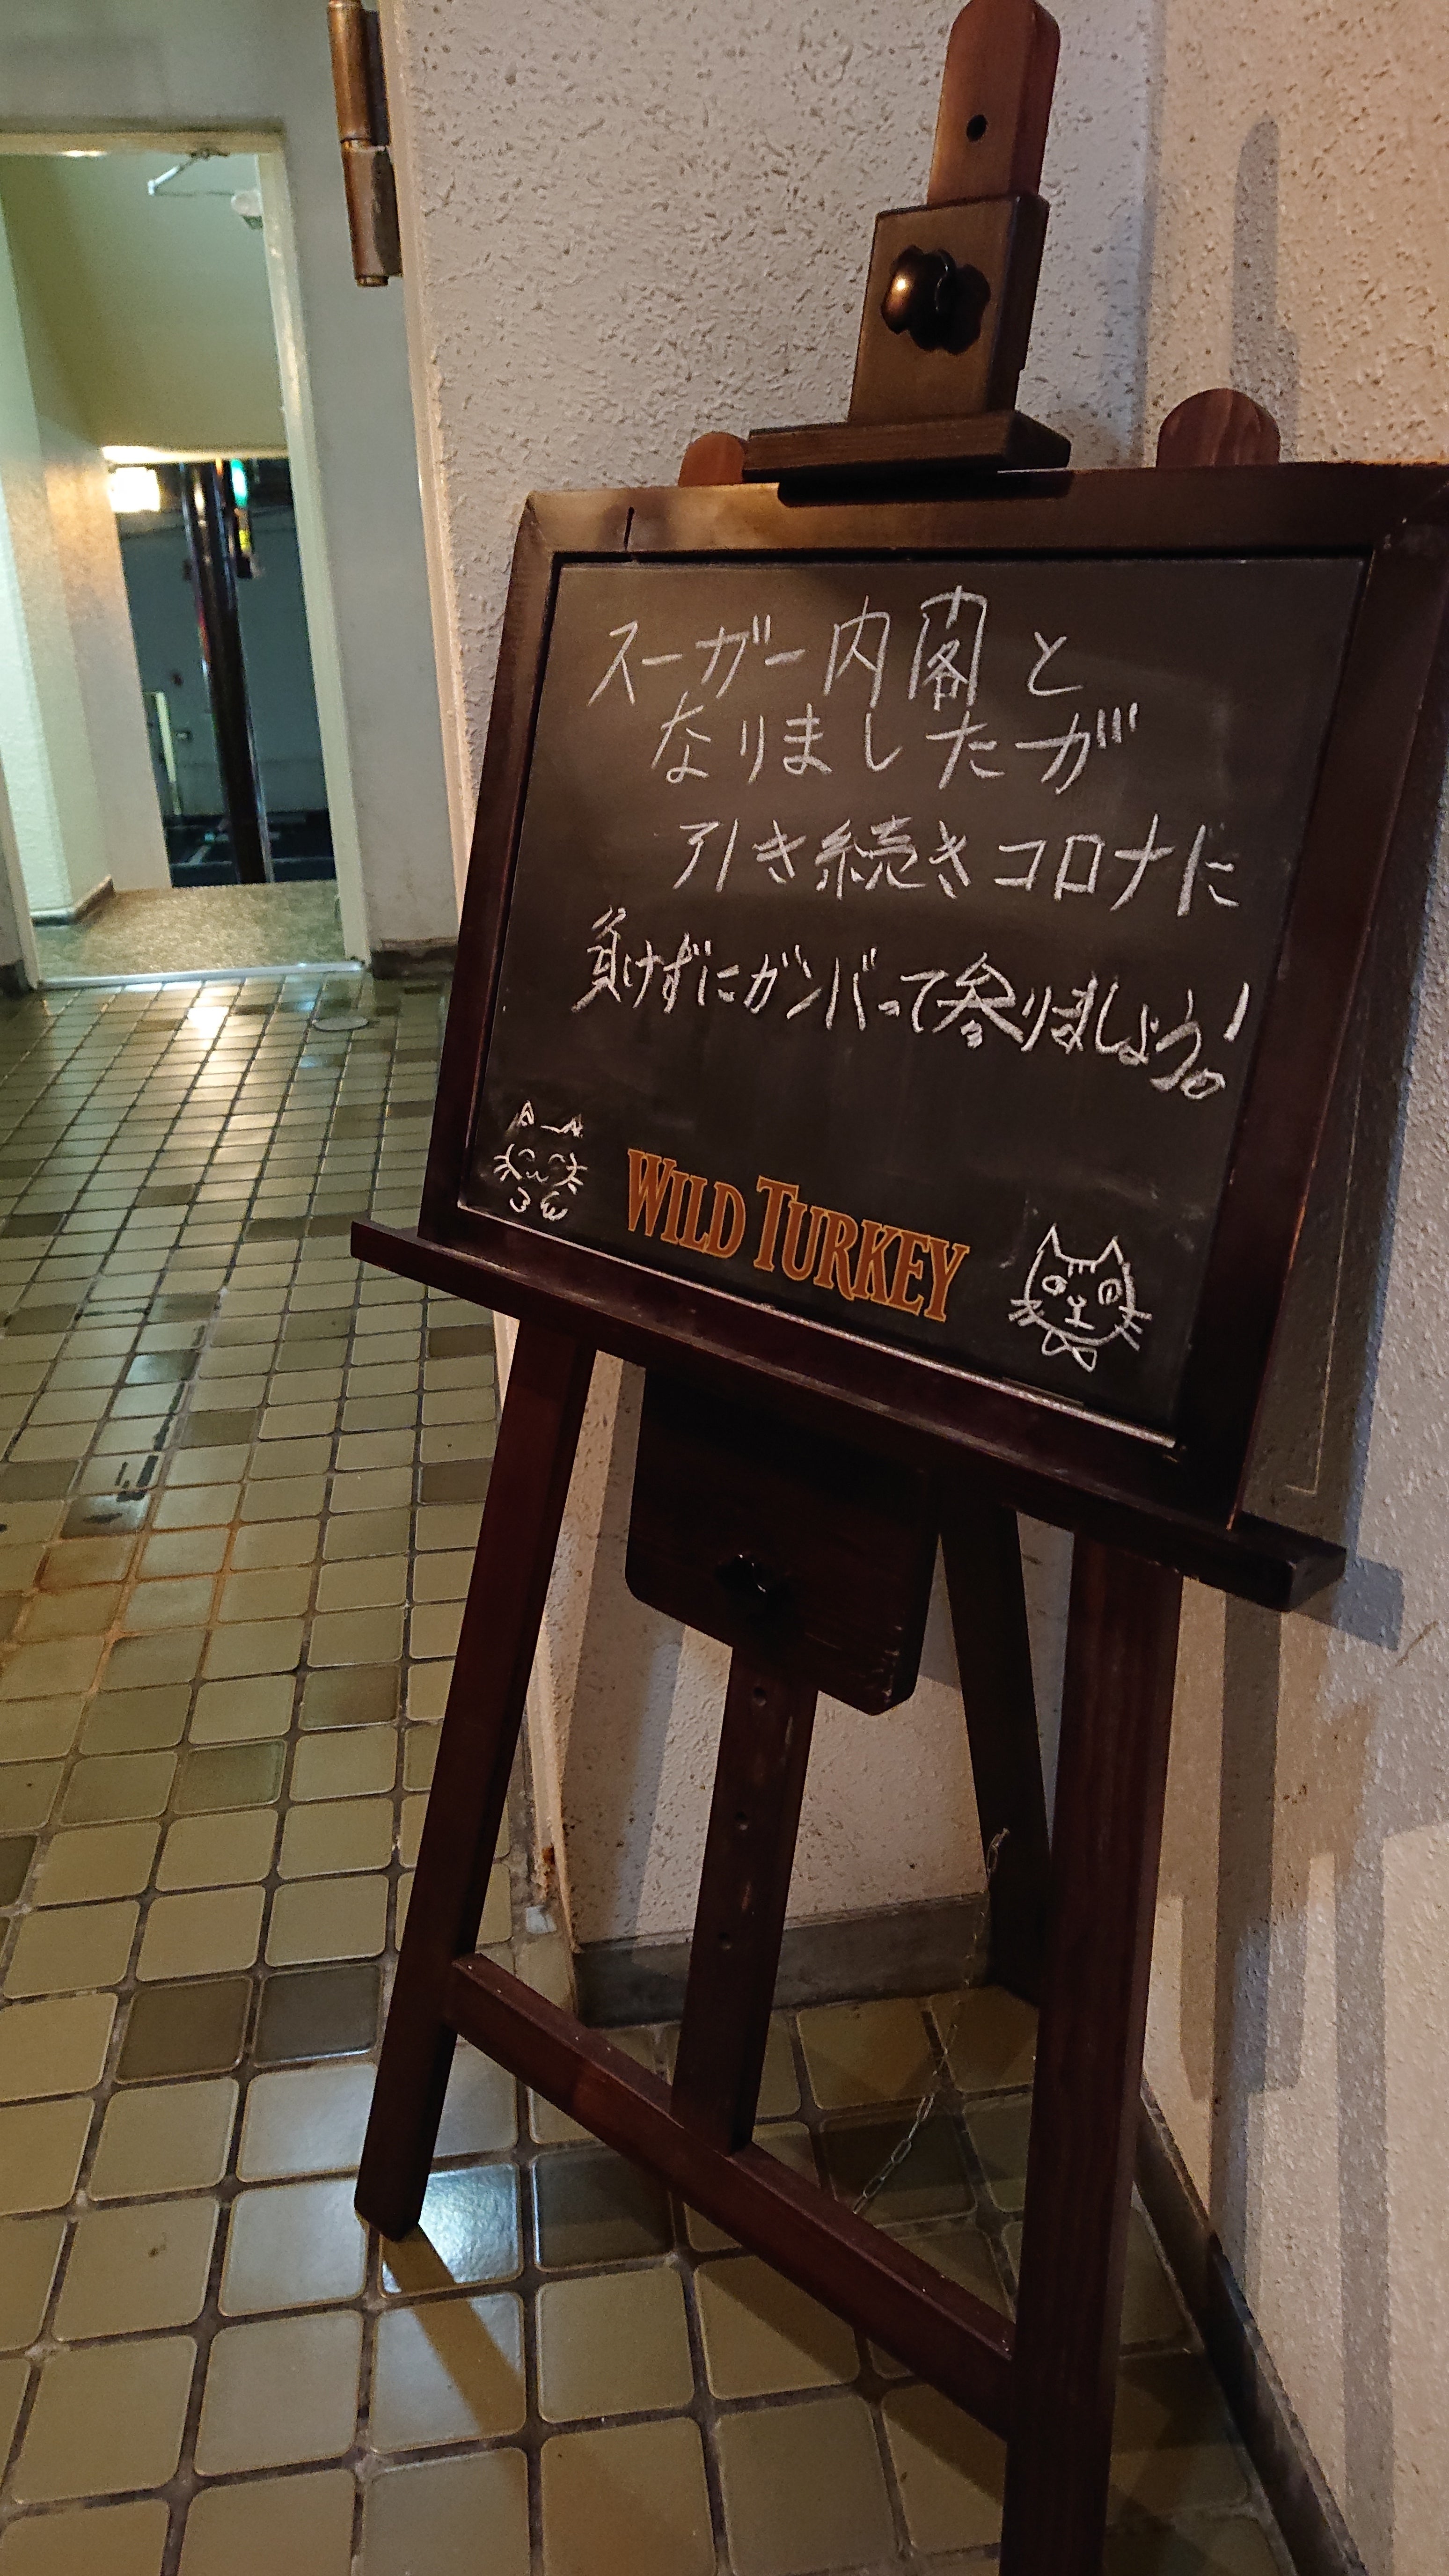 スーガー内閣と
なりましたが
引き続きコロナに
負けずにガンバって参りましょう!
WILD TURKEY